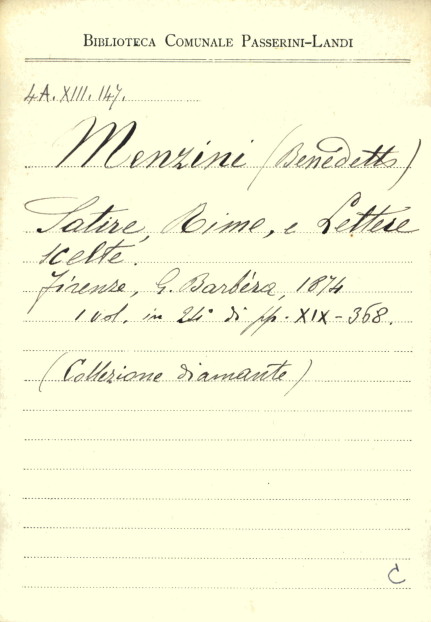 BIBLIOTECA COMUNALE PASSERINI-LANDI
4A. XIII. 147.
Menzini (Benedetto)
Satire, Rime, e Lettere
scelte.
Firenze, G. Barbèra, 1874
1 vol. in 24° di pp. XIX-368.
(Collezione diamante)
C